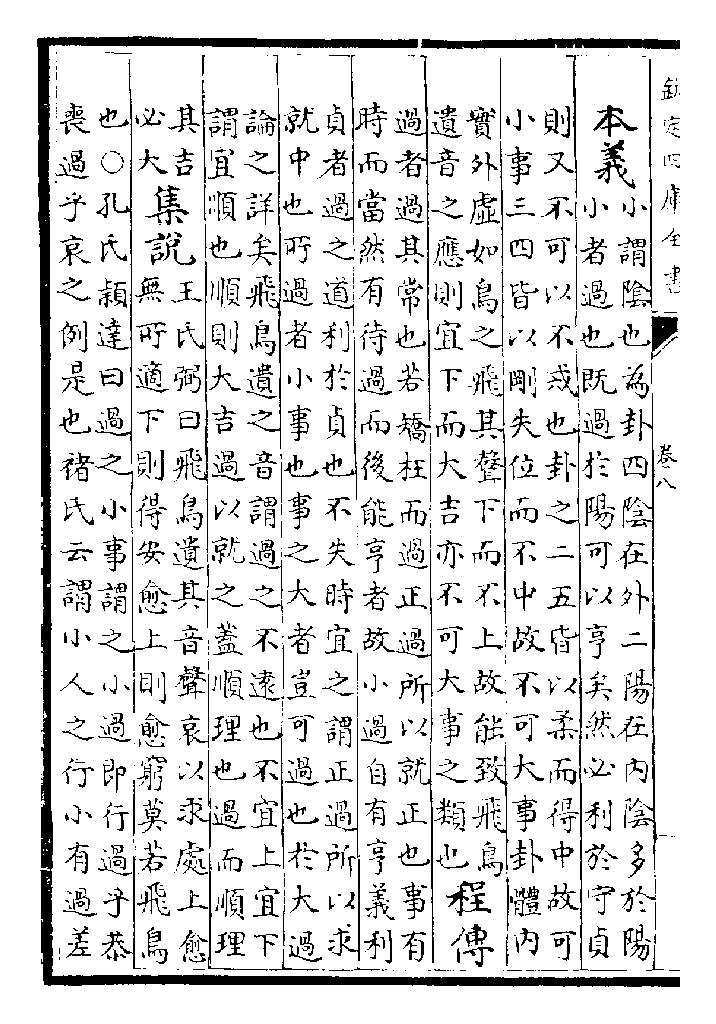 欽定四庫全書
卷八
本義小謂陰也為卦四陰在外二陽在內陰多於陽
小者過也既過於陽可以亨矣然必利於守貞
則又不可以不戒也卦之二五皆以柔而得中故可
小事三四皆以剛失位而不中故不可大事卦體內
實外虛如鳥之飛其聲下而不上故能致飛鳥
遺音之應則宜下而大吉亦不可大事之類也程傳
過者過其常也若矯枉而過正過所以就正也事有
時而當然有待過而後能亨者故小過自有亨義利
貞者過之道利於貞也不失時宜之謂正過所以求
就中也所過者小事也事之大者豈可過也於大過
論之詳矣飛鳥遺之音謂過之不遠也不宜上宜下
謂宜順也順則大吉過以就之蓋順理也過而順理
其吉
必大集說王氏弼曰飛鳥遺其音聲哀以求處上愈
無所適下則得安愈上則愈窮莫若飛鳥
也○孔氏穎達曰過之小事謂之小過即行過乎恭
喪過乎哀之例是也褚氏云謂小人之行小有過差